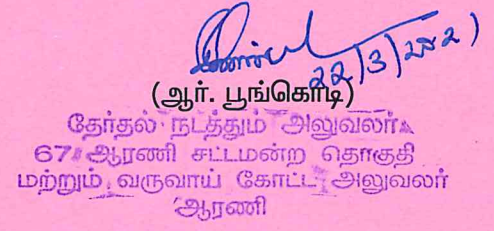 22/3/2021
(ஆர். பூங்கொடி)
தேர்தல் நடத்தும் அலுவலர்
67 ஆரணி சட்டமன்ற தொகுதி
மற்றும் வருவாய் கோட்ட அலுவலர்
ஆரணி